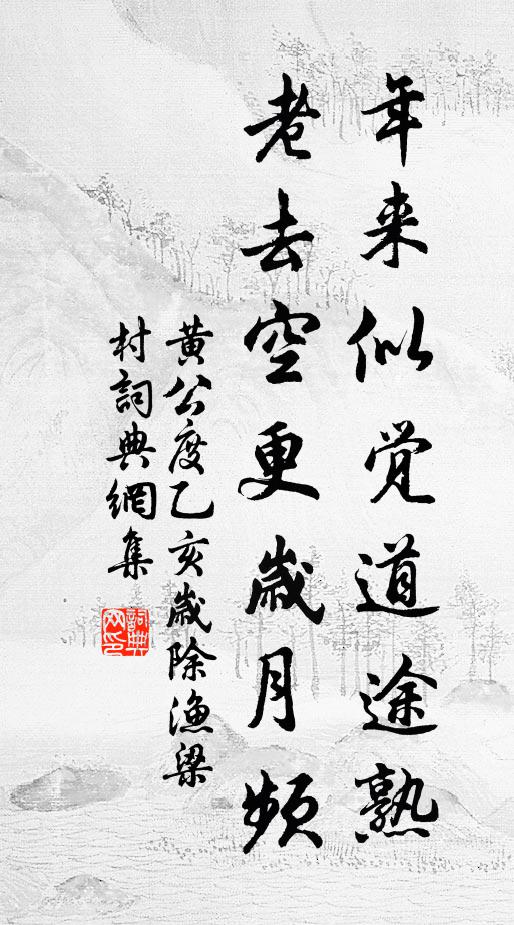 年来似觉道途熟
老去空更歲月頻
黄公度乙亥歲除漁梁
村詞典網集
詞典
网印